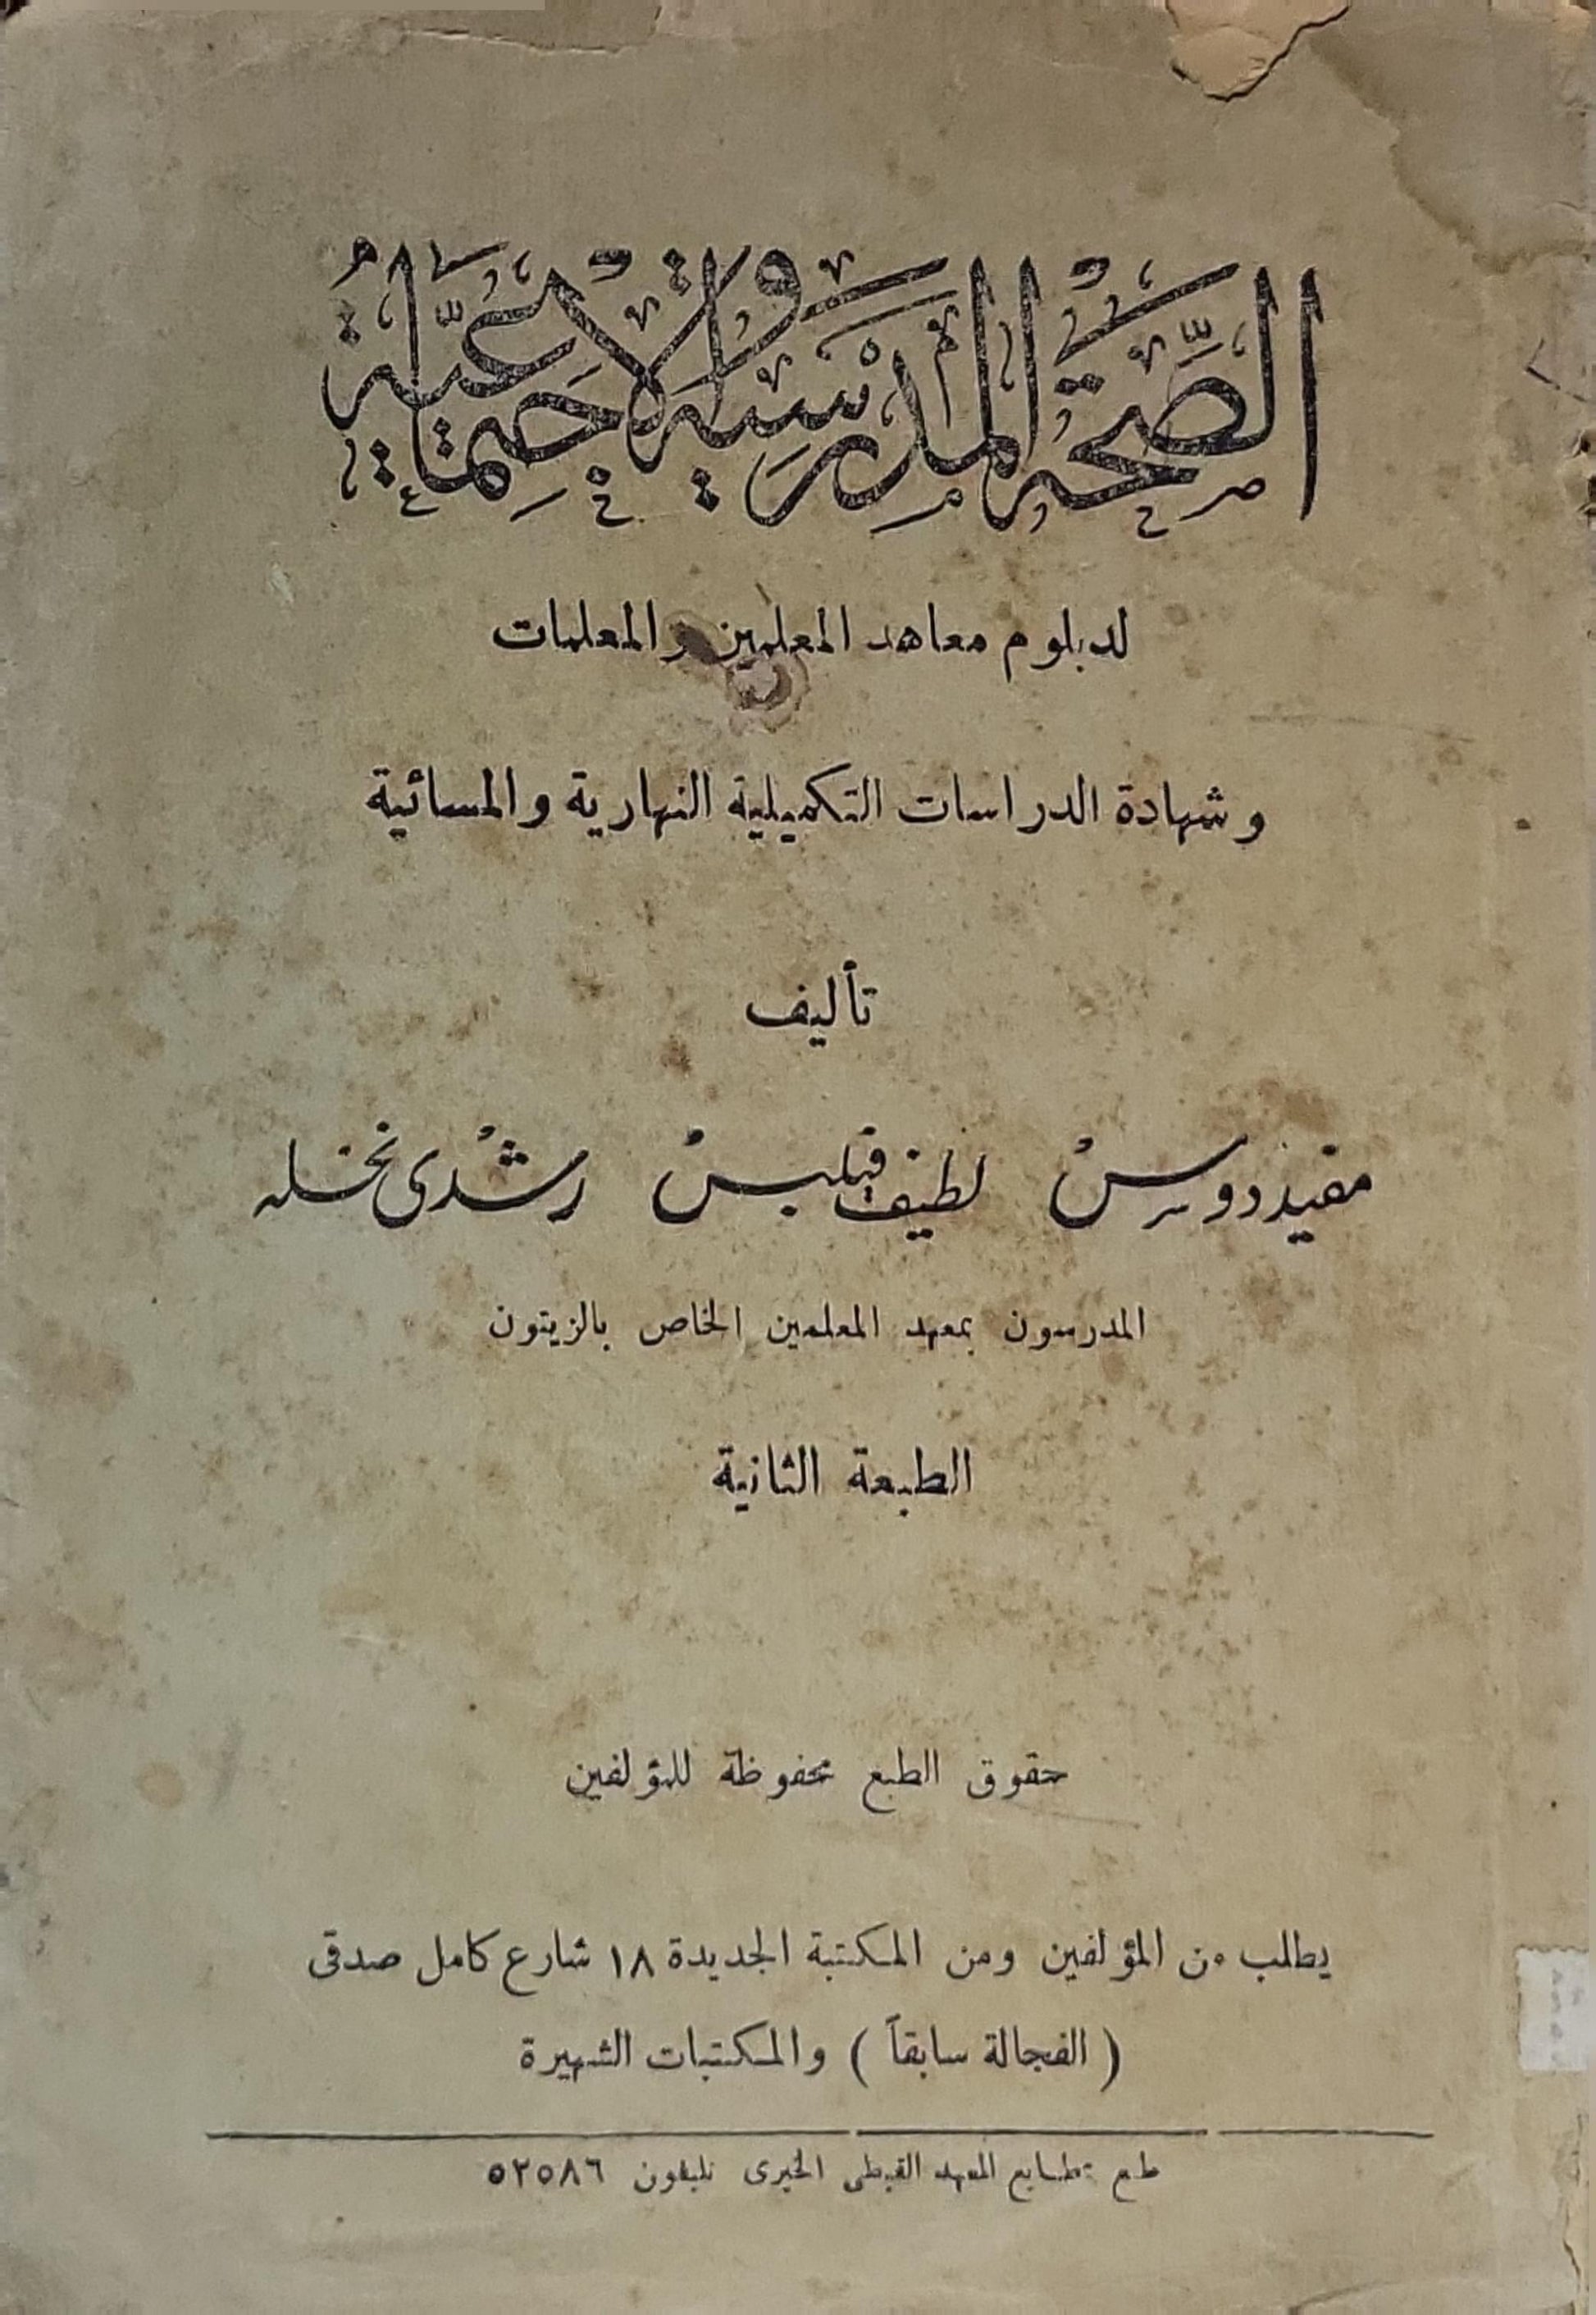 الصحة المدرسية والاجتماعية
لدبلوم معاهد المعلمين والمعلمات
وشهادة الدراسات التكميلية النهارية والمسائية
تأليف
مفيد دوس لطيف قلبس رشدى نخله
المدرسون بمعهد المعلمين الخاص بالزيتون
الطبعة الثانية
حقوق الطبع محفوظة للمؤلفين
يطلب من المؤلفين ومن المكتبة الجديدة ١٨ شارع كامل صدقى
( الفجالة سابقاً ) والمكتبات الشهيرة
طبع بمطابع المعهد القبطى الخيرى تليفون ٥٢٥٨٦